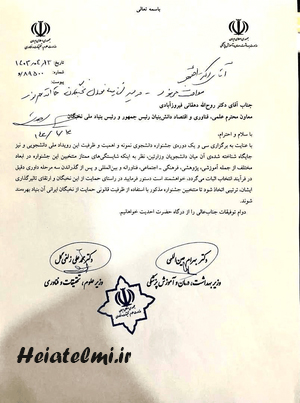 باسمه تعالی
تاریخ: ۱۴۰۳/۰۲/۱۲
شماره:
پیوست:
جناب آقای دکتر روح‌الله دهقانی فیروزآبادی
معاون محترم علمی، فناوری و اقتصاد دانش‌بنیان رئیس جمهور و رئیس بنیاد ملی نخبگان
با سلام و احترام،
با عنایت به برگزاری سی و یک دوره‌ی جشنواره دانشجوی نمونه و اهمیت و ظرفیت این رویداد ملی دانشجویی و نیز
جایگاه شناخته شده‌ی آن میان دانشجویان وزارتین، نظر به اینکه شایستگی‌های ممتاز منتخبین این جشنواره در ابعاد
مختلف از جمله آموزشی، پژوهشی، فرهنگی - اجتماعی، فناورانه و بین‌المللی و پس از گذراندن سه مرحله داوری دقیق
در فرآیند انتخاب اثبات می‌گردد، خواهشمند است دستور فرمایید در راستای حمایت از این نخبگان و ارتقای تاثیرگذاری
ایشان ترتیبی اتخاذ شود تا منتخبین جشنواره مذکور با استفاده از ظرفیت قانونی از حمایت‌های نخبگانی آن بنیاد بهره‌مند
شوند.
دوام توفیقات جناب‌عالی را از درگاه حضرت احدیت خواهانیم.
دکتر بهرام عین‌اللهی
وزیر بهداشت، درمان و آموزش پزشکی
دکتر محمدعلی زلفی‌گل
وزیر علوم، تحقیقات و فناوری
Heiatelmi.ir